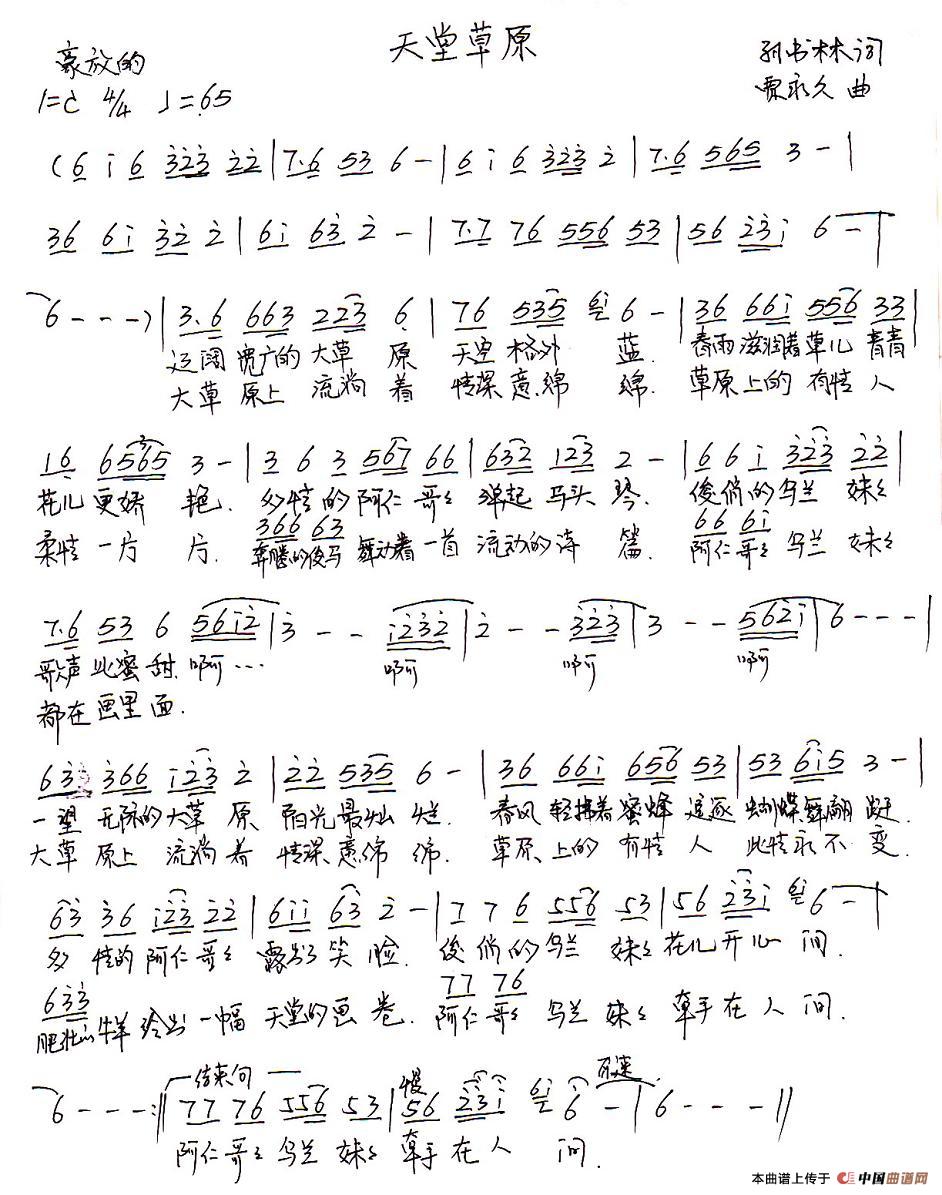 天堂草原
豪放的
孙书林词
1=C 4/4 ♩=65
贾永久 曲
(6 i 6 323 22 | 7.6 53 6 - | 6 i 6 323 2 | 7.6 565 3 - |
36 6i 32 2 | 6i 63 2 - | 7.7 76 556 53 | 56 23i 6 - |
6 - - - ) | 3.6 663 223 6 | 76 535 6i 6 - | 36 66i 556 33 |
辽阔 宽广的 大草 原 天空 格外 蓝. 春雨 滋润着 草儿 青青
大草 原上 流淌 着 情深 意绵 绵. 草原 上的 有情 人
16 6565 3 - | 3 6 3 567 66 | 632 123 2 - | 6 6 i 323 22 |
花儿 更娇 艳. 多情的 阿仁 哥々 弹起 马头 琴. 俊俏的 乌兰 妹々
366 63 66 6i
柔情 一片 片. 奔腾的俊马 舞动着 一首 流动的 诗 篇. 阿仁 哥々 乌兰 妹々
7.6 53 6 56i2 | 3 - - i232 | 2 - - 323 | 3 - - 562i | 6 - - - |
歌声 比蜜 甜. 啊… 啊 啊 啊
都在 画里 面.
63 366 i23 2 | 22 535 6 - | 36 66i 656 53 | 53 6i5 3 - |
一望 无际的 大草 原 阳光 最灿 烂. 春风 轻拂着 蜜蜂 追逐 蝴蝶 舞翩 跹.
大草 原上 流淌 着 情深 意绵 绵. 草原 上的 有情 人 此情 永不 变.
63 36 i23 22 | 6ii 63 2 - | 7 7 6 556 53 | 56 23i 6i 6 - |
多 情的 阿仁 哥々 露出了 笑 脸. 俊俏的 乌兰 妹々 花儿 开心 间.
633 77 76
肥壮的 牛羊 绘出 一幅 天堂的 画 卷. 阿仁 哥々 乌兰 妹々 牵手 在人 间.
结束句 慢
6 - - - :‖ 77 76 556 53 | 56 23i 6i 6 - | 6 - - - ‖
阿仁 哥々 乌兰 妹々 牵手 在人 间.
本曲谱上传于 中国曲谱网